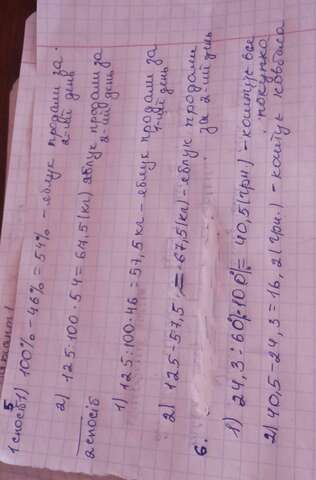 5
1 спосіб 1) 100% - 46% = 54% - яблук продали за
2-ий день
2) 125:100·54 = 67,5(кг) яблук продали за
2-ий день
2 спосіб
1) 125:100·46 = 57,5 кг - яблук продали за
1-ий день
2) 125-57,5 = 67,5(кг) - яблук продали
за 2-ий день
6.
1) 24,3:60·100 = 40,5(грн.) - коштує вся
покупка
2) 40,5-24,3=16,2(грн.) - коштує ковбаса